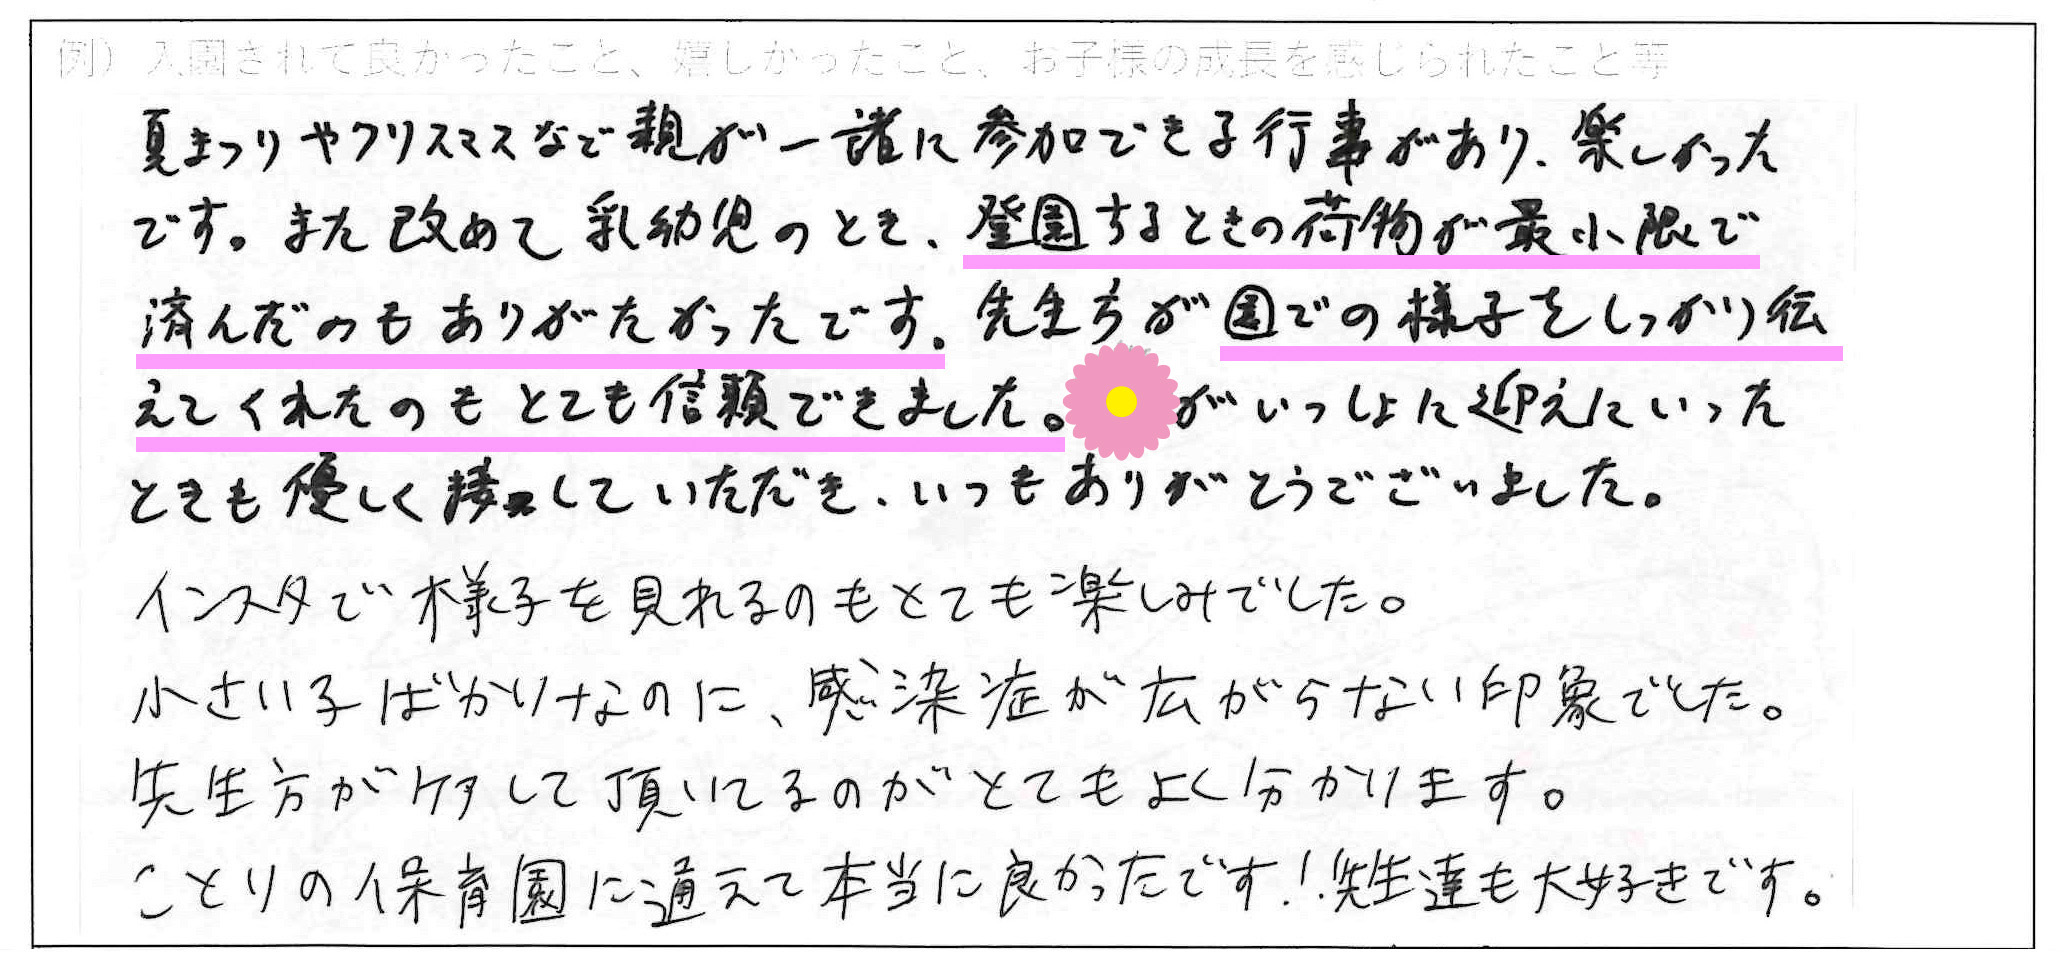 例）入園されて良かったこと、嬉しかったこと、お子様の成長を感じられたこと等
夏まつりやクリスマスなど親が一諸に参加できる行事があり、楽しかった
です。また改めて乳幼児のとき、登園するときの荷物が最小限で
済んだのもありがたかったです。先生方が園での様子をしっかり伝
えてくれたのもとても信頼できました。がいっしょに迎えにいった
ときも優しく接して いただき、いつもありがとうございました。
インスタで様子を見れるのもとても楽しみでした。
小さい子ばかりなのに、感染症が広がらない印象でした。
先生方がケアして頂いてるのがとてもよく分かります。
ことりの保育園に通えて本当に良かったです！！先生達も大好きです。